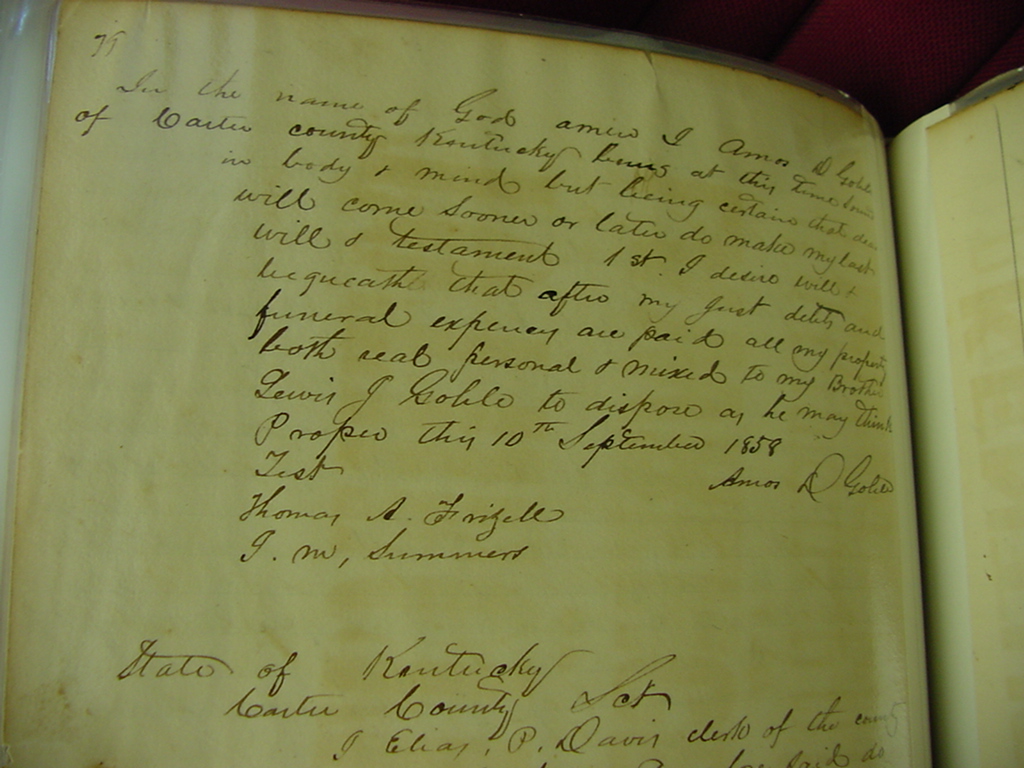 In the name of God amen I Amos D Goble
of Carter county Kentucky being at this time sound
in body & mind but being certain that
will come sooner or later do make my last
will & testament 1st. I desire will &
bequeath that after my just debts and
funeral expences are paid all my property
both real personal & mixed to my Brother
Lewis J Goble to dispose as he may think
Proper this 10th September 1858
Test Amos D Goble
Thomas A. Frizell
J. M, Summers
State of Kentucky
Carter County Sct
I Elias, P. Davis clerk of the county
said do